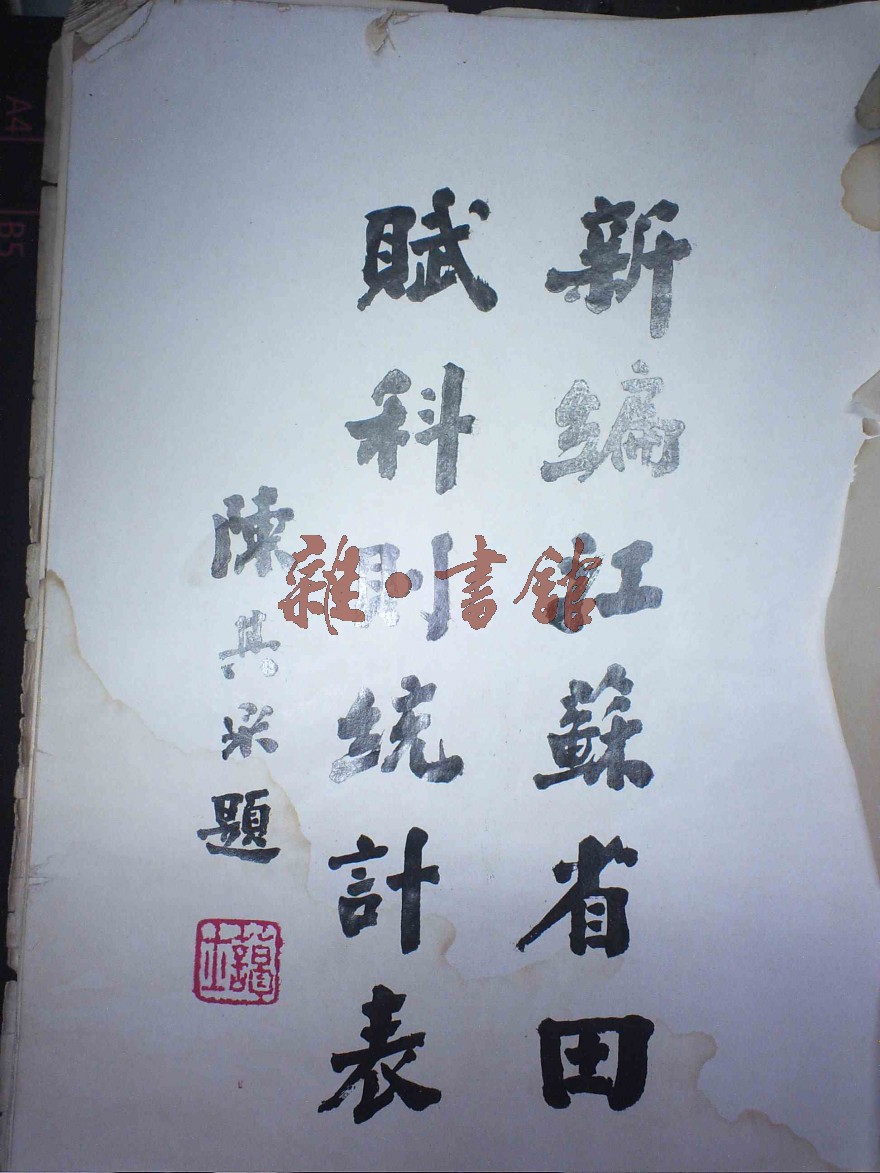 新編江蘇省田
賦科則統計表
陳其采題
雜·書館
A4
B5